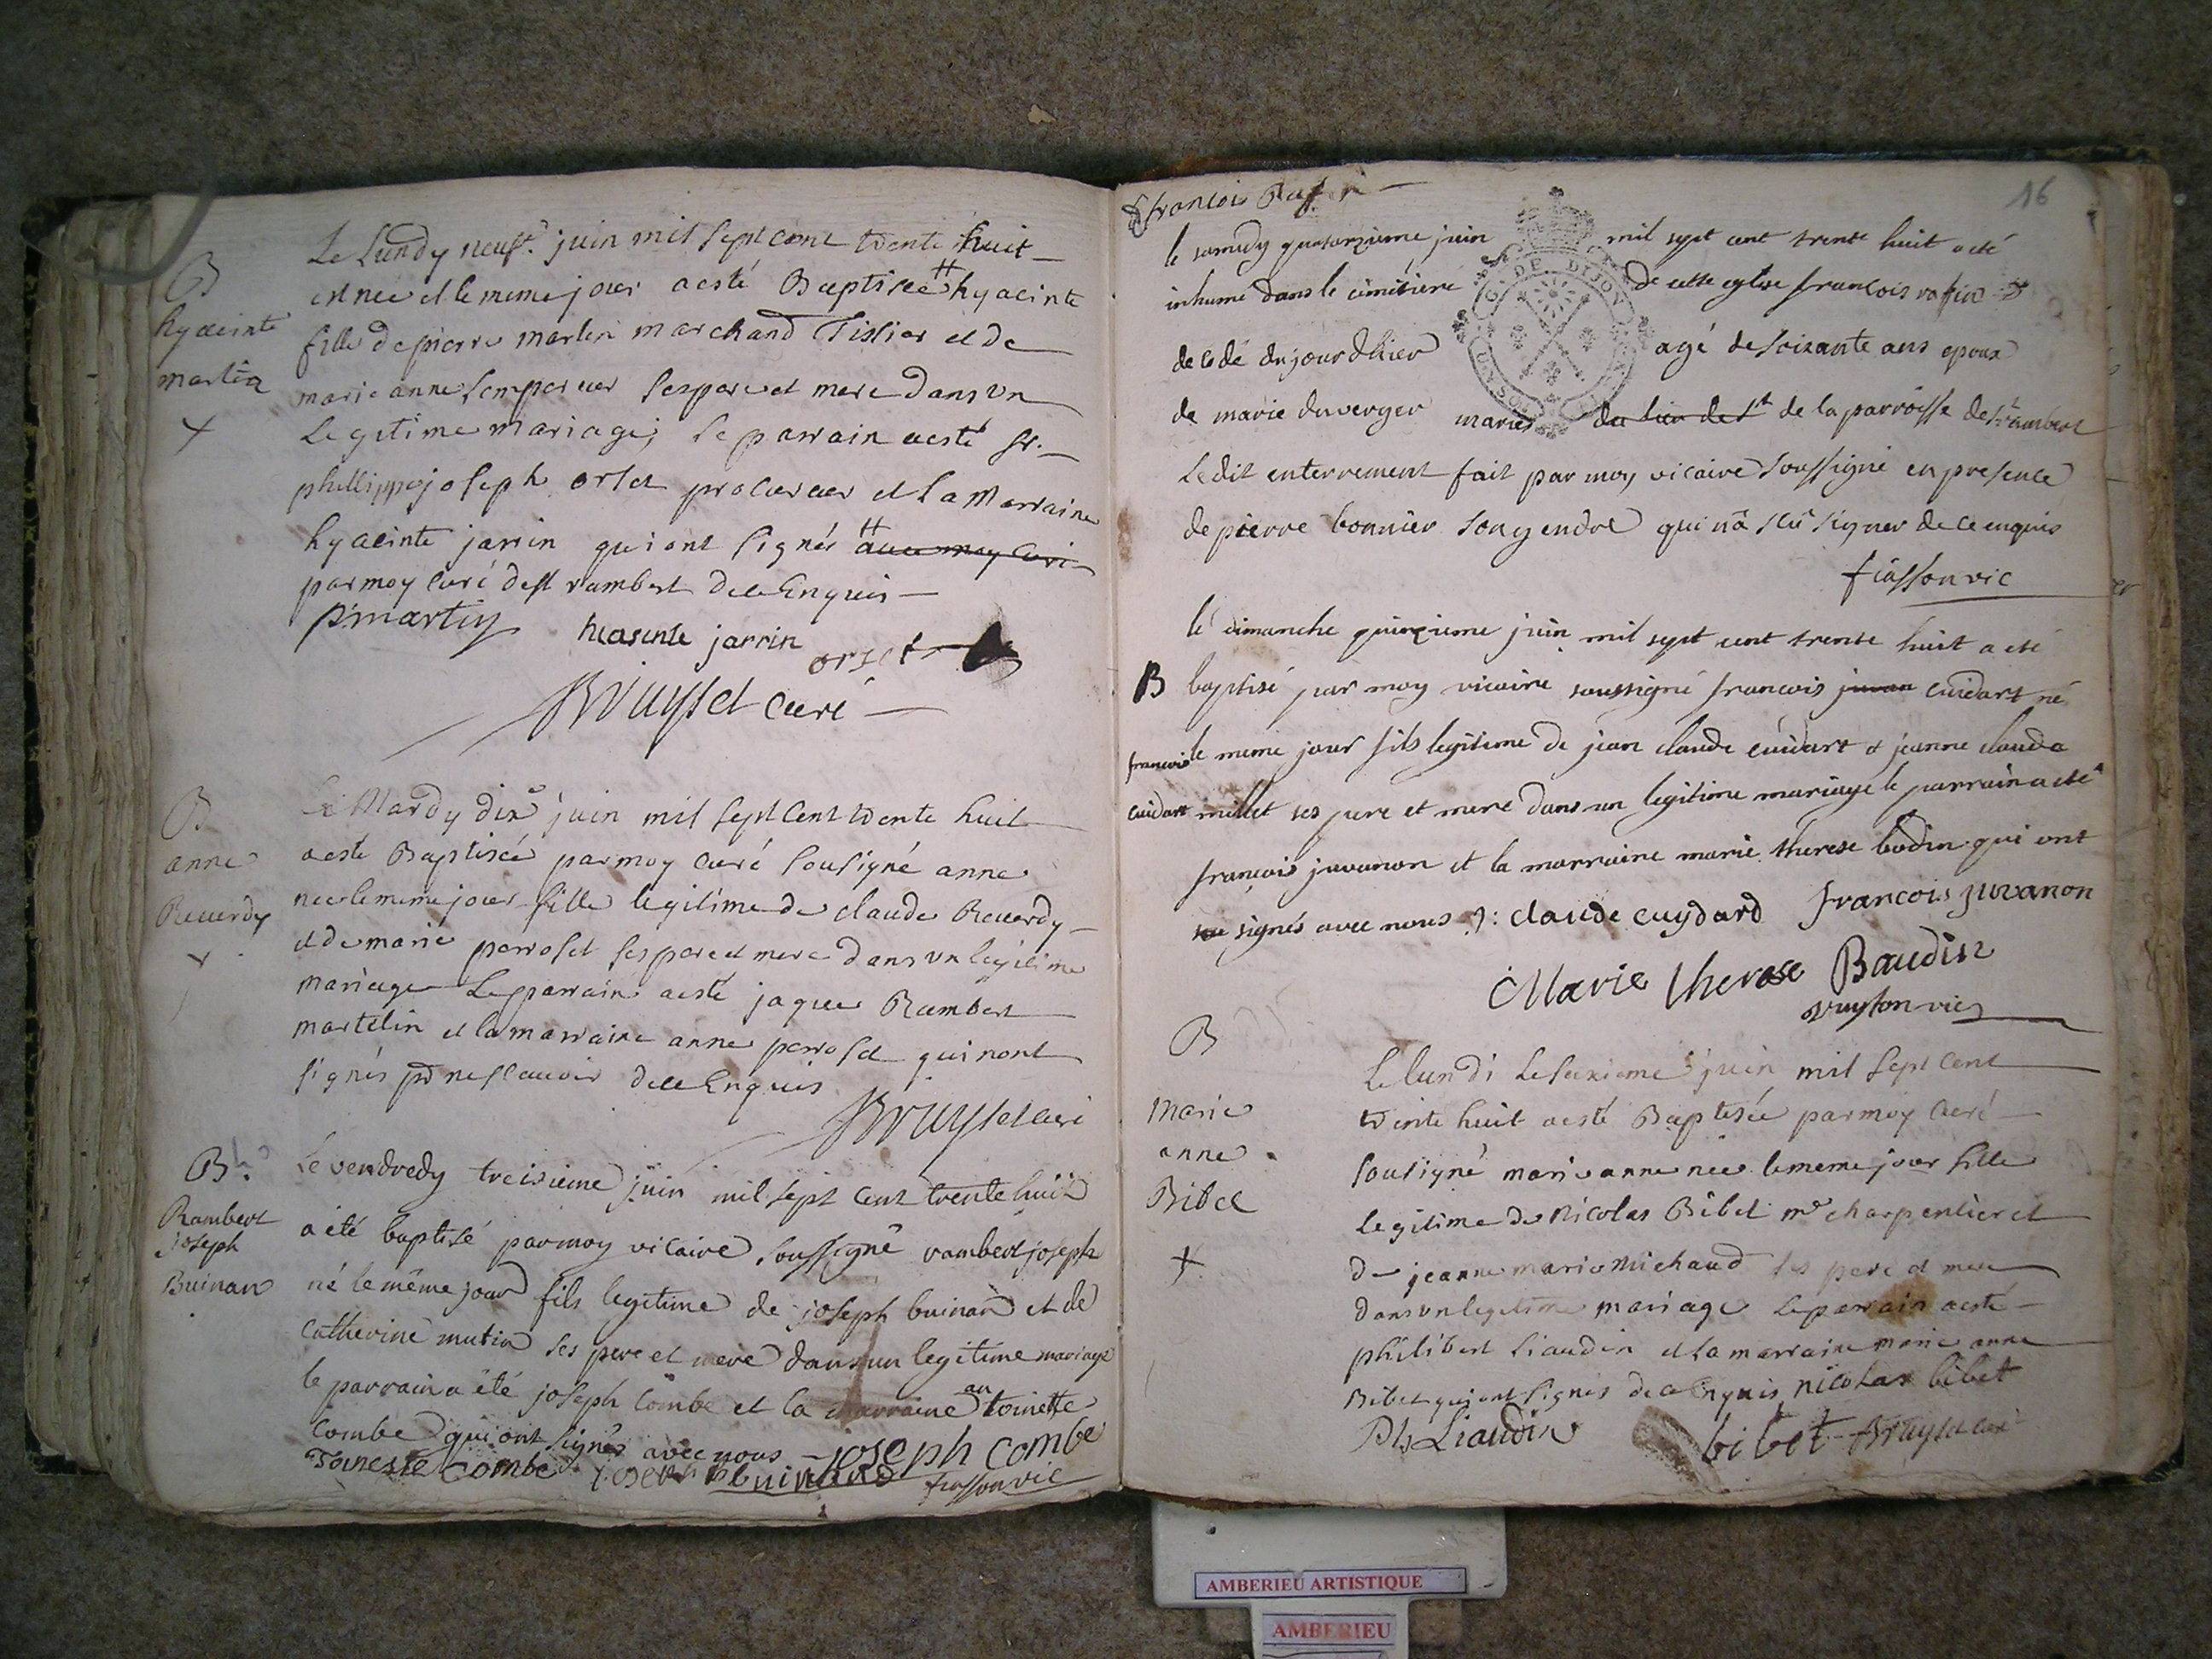 B
hyacinte
martin
Le Lundy neufe. juin mil sept cent trente huit
est née et le meme jour a esté Baptisée hyacinte
fille de pierre martin marchand Tissier et de
marie anne ses pere et mere dans un
Legitime mariage; le parrain a esté sr.
phillippe joseph orset procureur et la Marraine
hyacinte jarrin qui ont signés avec moy curé
par moy curé de st rambert de ce Enquis
P martin
hiasinte jarrin
orset
Bruyset curé
B
anne
Reverdy
Le Mardy dixe juin mil sept Cent trente huit
a esté Baptisée par moy curé sousigné anne
née le meme jour fille legitime de claude Reverdy
et de marie perroset ses pere et mere dans un legitime
mariage Le parrain a esté jaques Rambert
martelin et la marraine anne perroset qui nont
signés pr ne scavoir de ce Enquis
Bruyset curé
B
Rambert
joseph
Buinan
Le vendredy treisieme juin mil sept cent trente huit
a été baptisé par moy vicaire soussigné rambert joseph
né le même jour fils legitime de joseph buinan et de
Catherine mutin ses pere et mere dans un legitime mariage
le parrain a été joseph Combe et la marraine antoinette
Combe qui ont signés avec nous joseph combe
Toineste combe joseph buinand fiasson vic
16
françois
le samedy quatorzieme juin mil sept cent trente huit a eté
inhumé dans le cimétiere de cette eglise francois
decedé du jour dhier agé de soixante ans epoux
de marie duverger mariés du lieu de st de la parroisse de st rambert
Ledit enterrement fait par moy vicaire soussigné en presence
de pierre bonnier son gendre qui n'a scû signer de ce enquis
fiasson vic
C. DE DIJON
B
francois
cuidart
le dimanche quinzieme juin mil sept cent trente huit a eté
baptisé par moy vicaire soussigné francois juvan cuidart né
le meme jour fils legitime de jean claude cuidart et jeanne claude
millet ses pere et mere dans un legitime mariage le parrain a eté
françois juvanon et la marraine marie therese bodin qui ont
signés avec nous J: claude cuydard francois juvanon
Marie therese Baudin
B
Marie
anne
Bibet
Le lundi Le seizieme juin mil sept cent
trente huit a esté Baptisée par moy curé
sousigné marie anne née le meme jour fille
Legitime de Nicolas Bibet me charpentier et
de jeanne marie Michaud ses pere et mere
dans un legitime mariage Le parrain a esté
philibert Liaudin et la marraine marie anne
Bibet qui ont signés de ce Enquis nicolas bibet
Ph Liaudin bibet Bruyset curé
AMBERIEU ARTISTIQUE
AMBERIEU